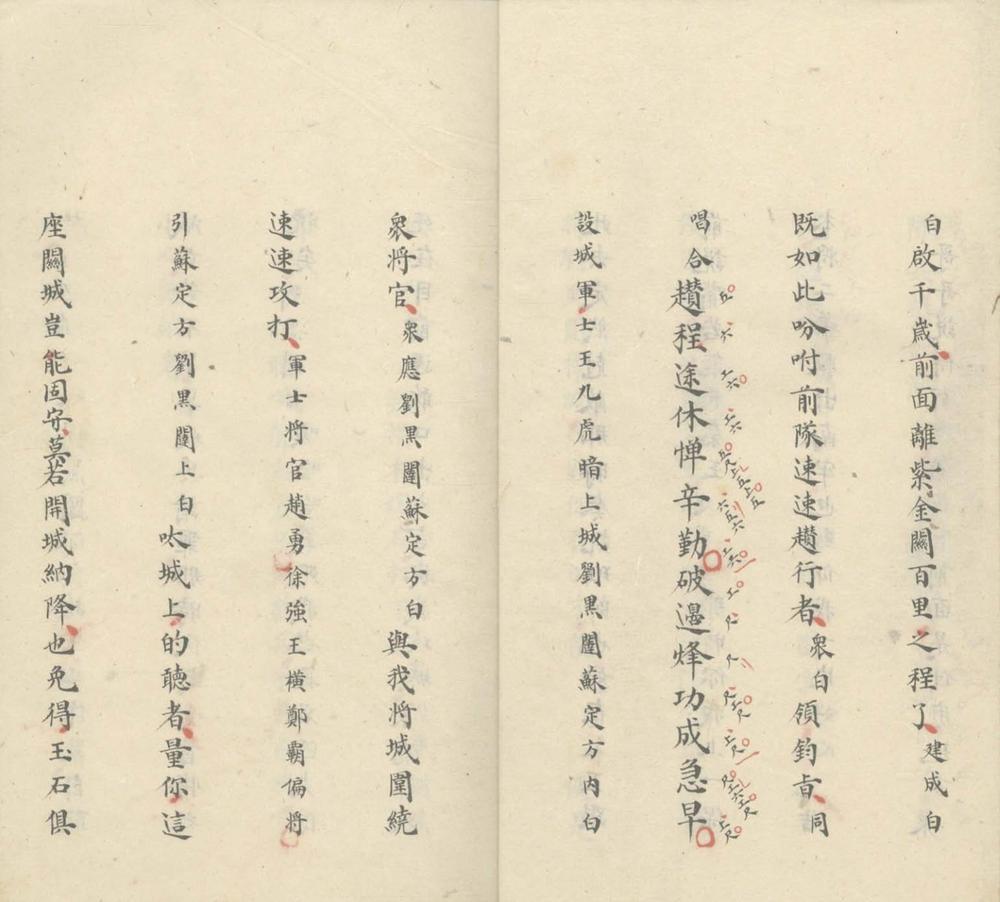 白啟千歲前面離紫金關百里之程了建成白
既如此吩咐前隊速速趲行者衆白領鈞旨同
唱合趲程途休惮辛勤破邉烽功成急早
設城軍士王九虎暗上城劉黒闥蘇定方内白
衆將官衆應劉黒闥蘇定方白與我將城圍繞
速速攻打軍士將官趙勇徐強王横鄭霸偏將
引蘇定方劉黒闥上白呔城上的聽者量你這
座關城豈能固守莫若開城納降也免得玉石俱